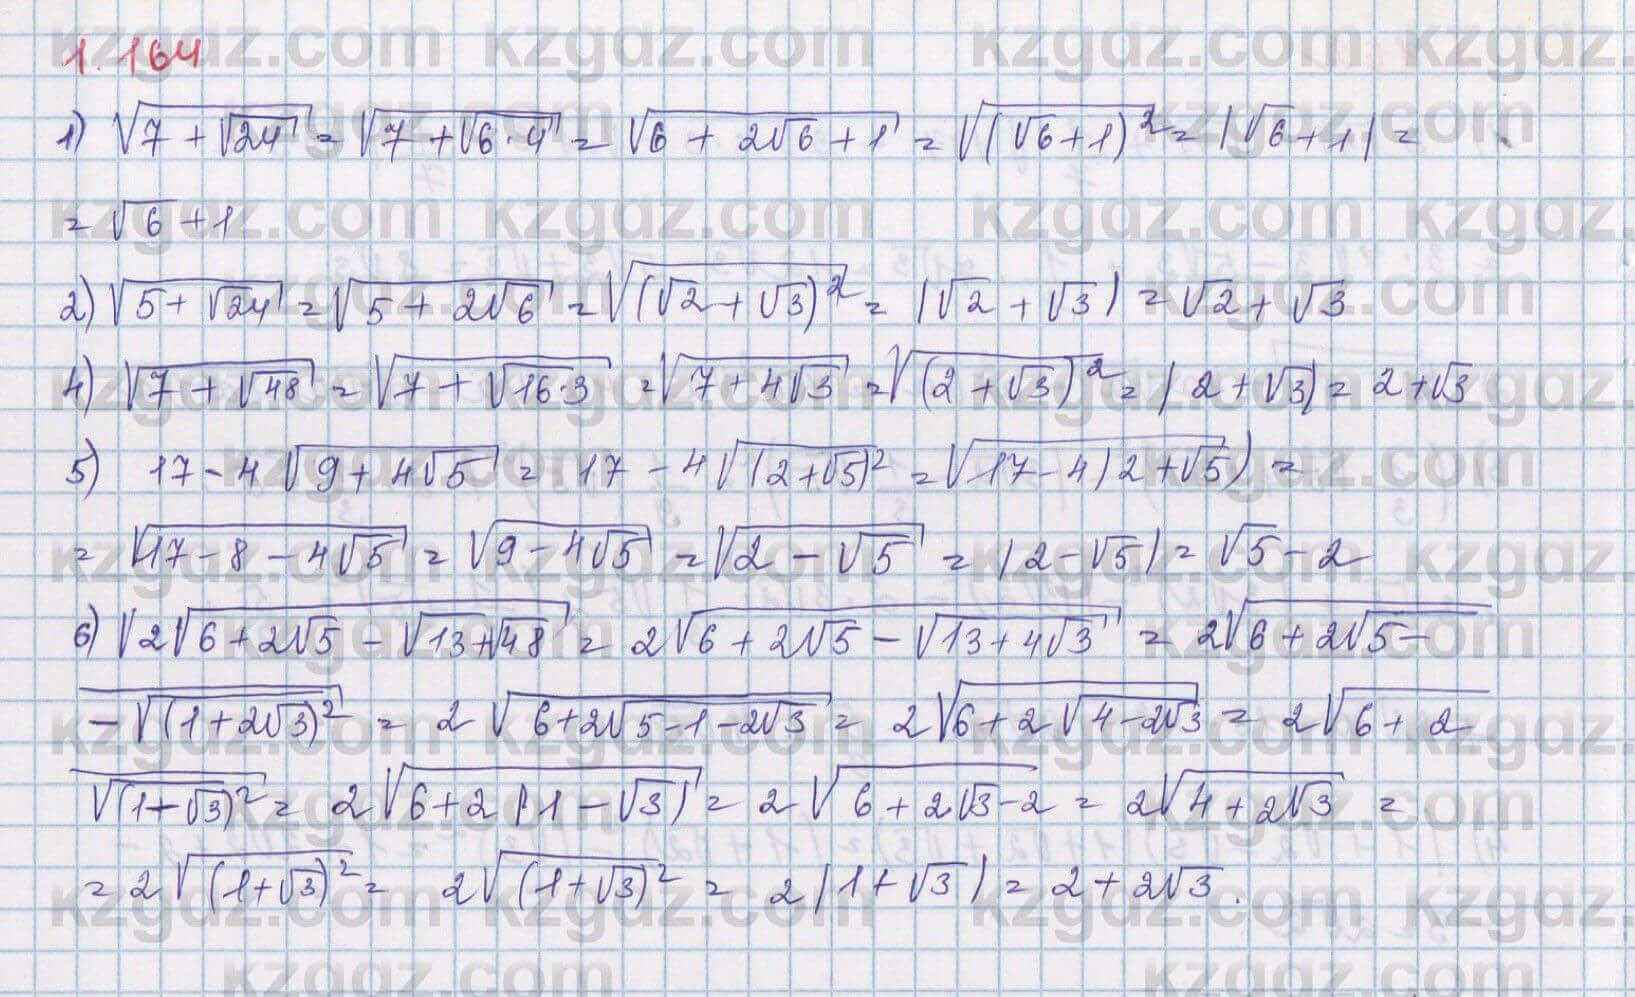 1.164
1) √(7 + √24) = √(7 + √(6·4)) = √(6 + 2√6 + 1) = √((√6 + 1)²) = |√6 + 1| =
= √6 + 1
2) √(5 + √24) = √(5 + 2√6) = √((√2 + √3)²) = |√2 + √3| = √2 + √3
4) √(7 + √48) = √(7 + √(16·3)) = √(7 + 4√3) = √((2 + √3)²) = |2 + √3| = 2 + √3
5) 17 - 4√(9 + 4√5) = 17 - 4√((2 + √5)²) = √(17 - 4|2 + √5|) =
= √(17 - 8 - 4√5) = √(9 - 4√5) = √(2 - √5) = |2 - √5| = √5 - 2
6) √2√(6 + 2√5 - √(13 + √48)) = 2√(6 + 2√5 - √(13 + 4√3)) = 2√(6 + 2√5 -
- √((1 + 2√3)²) = 2√(6 + 2√5 - 1 - 2√3) = 2√(6 + 2√(4 - 2√3)) = 2√(6 + 2
√((1 - √3)²) = 2√(6 + 2|1 - √3|) = 2√(6 + 2√3 - 2) = 2√(4 + 2√3) =
= 2√((1 + √3)²) = 2√((1 + √3)²) = 2|1 + √3| = 2 + 2√3.
kzgdz.com